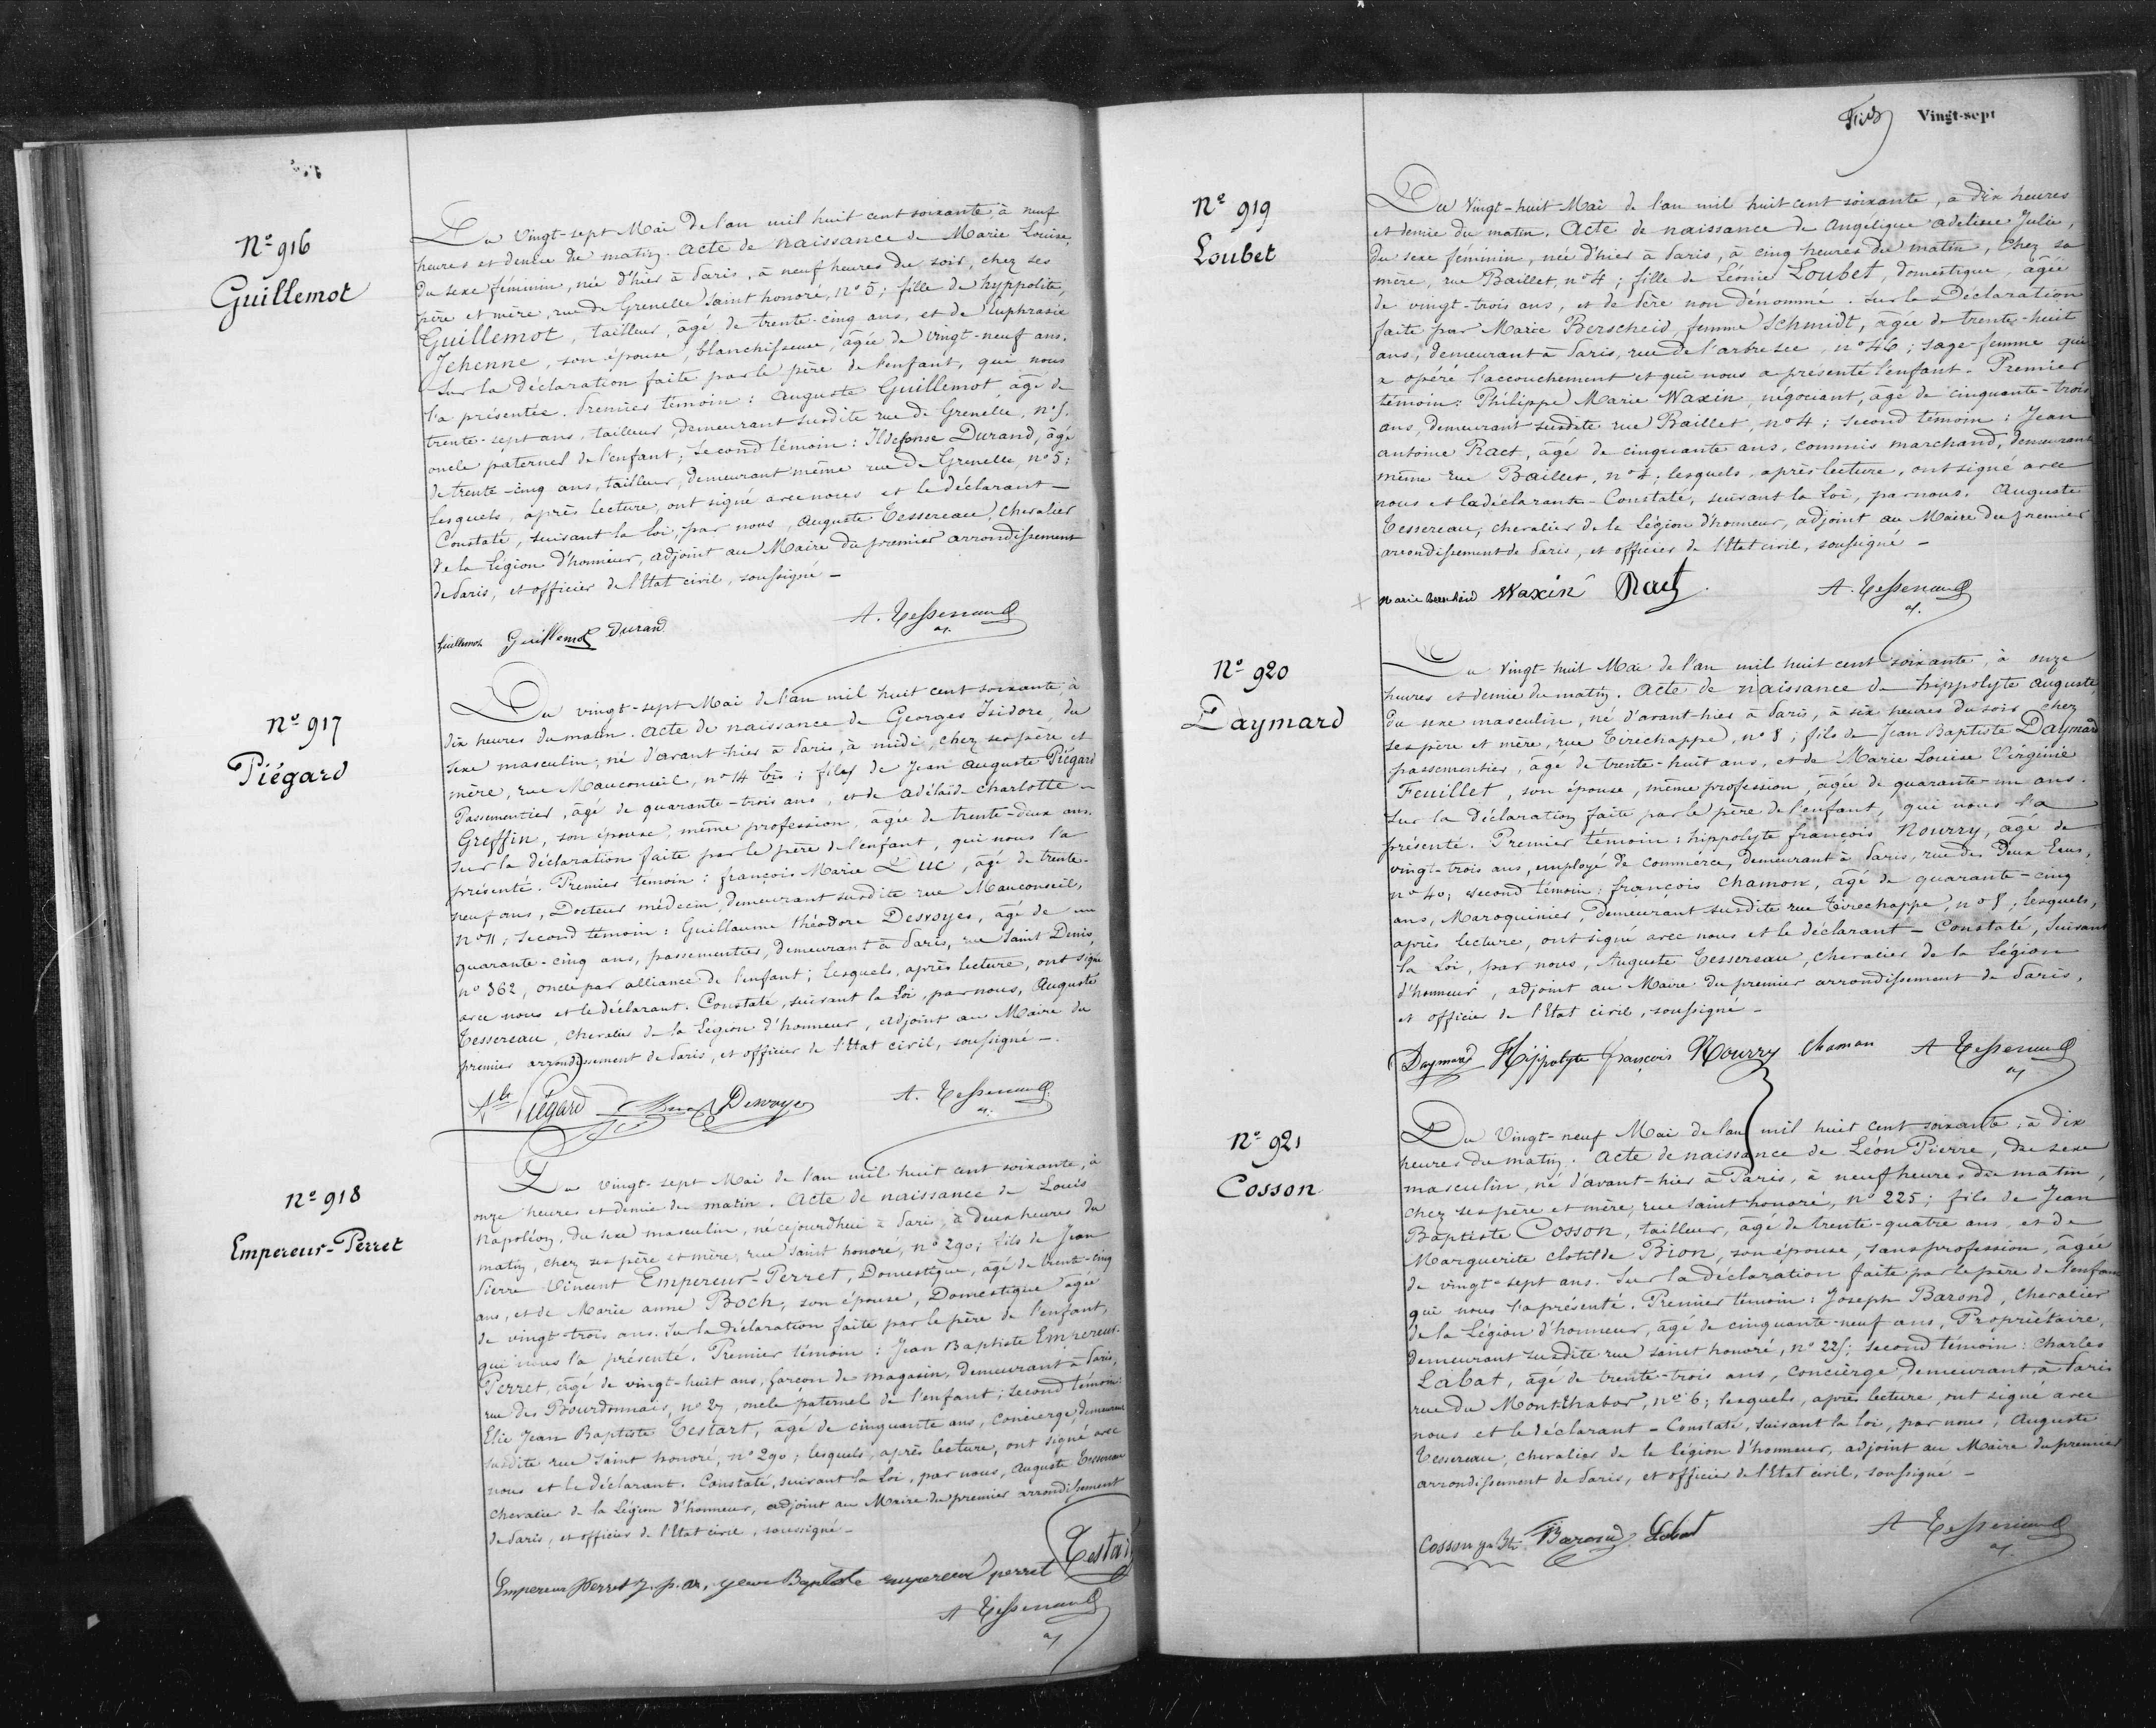 Nº 916
Guillemot
Du Vingt-sept Mai de l'an mil huit cent soixante, à neuf
heures et demie du matin. Acte de naissance de Marie Louise,
du sexe féminin, née d'hier à Paris, à neuf heures du soir, chez ses
père et mère, rue de Grenelle Saint honoré, nº 5; fille de hyppolite,
Guillemot, tailleur, âgé de trente-cinq ans, et de Euphrasie
Jehenne, son épouse, blanchisseuse, âgée de vingt-neuf ans.
Sur la déclaration faite par le père de l'enfant, qui nous
l'a présentée. Premier témoin: Auguste Guillemot, âgé de
trente-sept ans, tailleur, demeurant susdite rue de Grenelle, nº 5.
oncle paternel de l'enfant; Second témoin: Ildefonse Durand, âgé
de trente-cinq ans, tailleur, demeurant même rue de Grenelle, nº 5;
Lesquels, après lecture, ont signé avec nous et le déclarant —
Constaté, suivant la loi, par nous, Auguste Tessereau, chevalier
de la Légion d'honneur, adjoint au Maire du premier arrondissement
de Paris, et officier de l'Etat civil, soussigné —
Guillemot Guillemot Durand A. Tessereau
Nº 917
Piégard
Du vingt-sept Mai de l'an mil huit cent soixante, à
dix heures du matin. Acte de naissance de Georges Isidore, du
sexe masculin, né d'avant-hier à Paris, à midi, chez ses père et
mère, rue Mauconseil, nº 14 bis; fils de Jean Auguste Piégard
Passementier, âgé de quarante-trois ans, et de Adélaïde Charlotte
Greffin, son épouse, même profession, âgée de trente-deux ans.
Sur la déclaration faite par le père de l'enfant, qui nous l'a
présenté. Premier témoin: françois Marie Luc, âgé de trente-
neuf ans, Docteur médecin, demeurant susdite rue Mauconseil,
nº 11; second témoin: Guillaume théodore Desroyes, âgé de
quarante-cinq ans, passementier, demeurant à Paris, rue Saint Denis,
nº 362, oncle par alliance de l'enfant; lesquels, après lecture, ont signé
avec nous et le déclarant. Constaté, suivant la Loi, par nous, Auguste
Tessereau, chevalier de la Légion d'honneur, adjoint au Maire du
premier arrondissement de Paris, et officier de l'Etat civil, soussigné —.
Piégard A. Tessereau
Nº 918
Empereur-Perret
Du vingt-sept Mai de l'an mil huit cent soixante, à
onze heures et demie du matin. Acte de naissance de Louis
Napoléon, du sexe masculin, né cejourdhui à Paris, à deux heures du
matin, chez ses père et mère, rue Saint honoré, nº 290; fils de Jean
Pierre Vincent Empereur-Perret, Domestique, âgé de trente-cinq
ans, et de Marie anne Boch, son épouse, Domestique âgée
de vingt-trois ans. Sur la déclaration faite par le père de l'enfant,
qui nous l'a présenté. Premier témoin: Jean Baptiste Empereur-
Perret, âgé de vingt-huit ans, garçon de magasin, demeurant à Paris,
rue des Bourdonnais, nº 27, oncle paternel de l'enfant; second témoin:
Elie Jean Baptiste Testart, âgé de cinquante ans, concierge, demeurant
susdite rue Saint honoré, nº 290; lesquels, après lecture, ont signé avec
nous et le déclarant. Constaté, suivant la Loi, par nous, Auguste Tessereau
chevalier de la Légion d'honneur, adjoint au Maire du premier arrondissement
de Paris, et officier de l'Etat civil, soussigné —
Empereur Perret J. p. v. Jean Baptiste empereur perret Testart
A Tessereau
Vingt-sept
Nº 919
Loubet
Du Vingt-huit Mai de l'an mil huit cent soixante, à dix heures
et demie du matin. Acte de naissance de Angélique Adeline Julie,
du sexe féminin, née d'hier à Paris, à cinq heures du matin, chez sa
mère, rue Baillet, nº 4; fille de Léonie Loubet, domestique, âgée
de vingt-trois ans, et de Père non dénommé. Sur la Déclaration
faite par Marie Berscheid, femme Schmidt, âgée de trente-huit
ans, demeurant à Paris, rue de l'arbre sec, nº 46; sage-femme qui
a opéré l'accouchement et qui nous a présenté l'enfant. Premier
témoin: Philippe Marie Waxin, négociant, âgé de cinquante-trois
ans, demeurant susdite rue Baillet, nº 4; second témoin: Jean
antoine Ract, âgé de cinquante ans, commis marchand, demeurant
même rue Baillet, nº 4; lesquels, après lecture, ont signé avec
nous et la déclarante — Constaté, suivant la Loi, par nous, Auguste
Tessereau, chevalier de la Légion d'honneur, adjoint au Maire du premier
arrondissement de Paris, et officier de l'Etat civil, soussigné —
Marie Berscheid Waxin Ract A. Tessereau
Nº 920
Daymard
Du Vingt-huit Mai de l'an mil huit cent soixante, à onze
heures et demie du matin. Acte de naissance de hippolyte auguste,
du sexe masculin, né d'avant-hier à Paris, à six heures du soir, chez
ses père et mère, rue Tirechappe, nº 8; fils de Jean Baptiste Daymard
passementier, âgé de trente-huit ans, et de Marie Louise Virginie
Feuillet, son épouse, même profession, âgée de quarante-un ans.
Sur la déclaration faite par le père de l'enfant, qui nous l'a
présenté. Premier témoin: hippolyte françois Nourry, âgé de
vingt-trois ans, employé de commerce, demeurant à Paris, rue des Deux Ecus,
nº 40; second témoin: françois Chamon, âgé de quarante-cinq
ans, Maroquinier, demeurant susdite rue Tirechappe, nº 8; lesquels,
après lecture, ont signé avec nous et le déclarant — Constaté, suivant
la Loi, par nous, Auguste Tessereau, chevalier de la Légion
d'honneur, adjoint au Maire du premier arrondissement de Paris,
et officier de l'Etat civil, soussigné —
Daymard Hippolyte françois Nourry Chamon A Tessereau
Nº 921
Cosson
Du Vingt-neuf Mai de l'an mil huit cent soixante, à dix
heures du matin. Acte de naissance de Léon Pierre, du sexe
masculin, né d'avant-hier à Paris, à neuf heures du matin,
chez ses père et mère, rue Saint honoré, nº 225; fils de Jean
Baptiste Cosson, tailleur, âgé de trente-quatre ans, et de
Marguerite Clotilde Bion, son épouse, sans profession, âgée
de vingt-sept ans. Sur la déclaration faite par le père de l'enfant
qui nous l'a présenté. Premier témoin: Joseph Barond, chevalier
de la Légion d'honneur, âgé de cinquante-neuf ans, Propriétaire,
demeurant susdite rue saint honoré, nº 225; second témoin: Charles
Labat, âgé de trente-trois ans, concierge, demeurant à Paris
rue du Mont-Thabor, nº 6; lesquels, après lecture, ont signé avec
nous et le déclarant — Constaté, suivant la loi, par nous, Auguste
Tessereau, chevalier de la légion d'honneur, adjoint au Maire du premier
arrondissement de Paris, et officier de l'Etat civil, soussigné —
Cosson Barond Labat A Tessereau